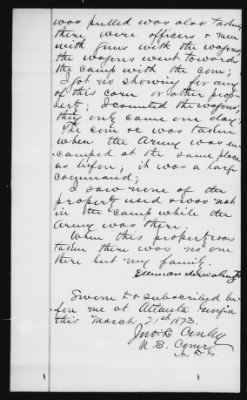 was pulled was also taken
there were officers & men
with guns with the wagons
the wagons went towards
the camp with the corn;
I got no showing for any
of this corn or other prop-
erty; I counted the wagons,
they only came one day,
The corn &c was taken
when the Army was en-
camped at the same place
as before; it was a large
command;
I saw none of the
property used & was not
in the camp while the
Army was there.
When this property was
taken there was no one
there but my family.
Sworn to & subscribed be-
fore me at Atlanta Georgia
this March 21st 1873.
U.S. Comr